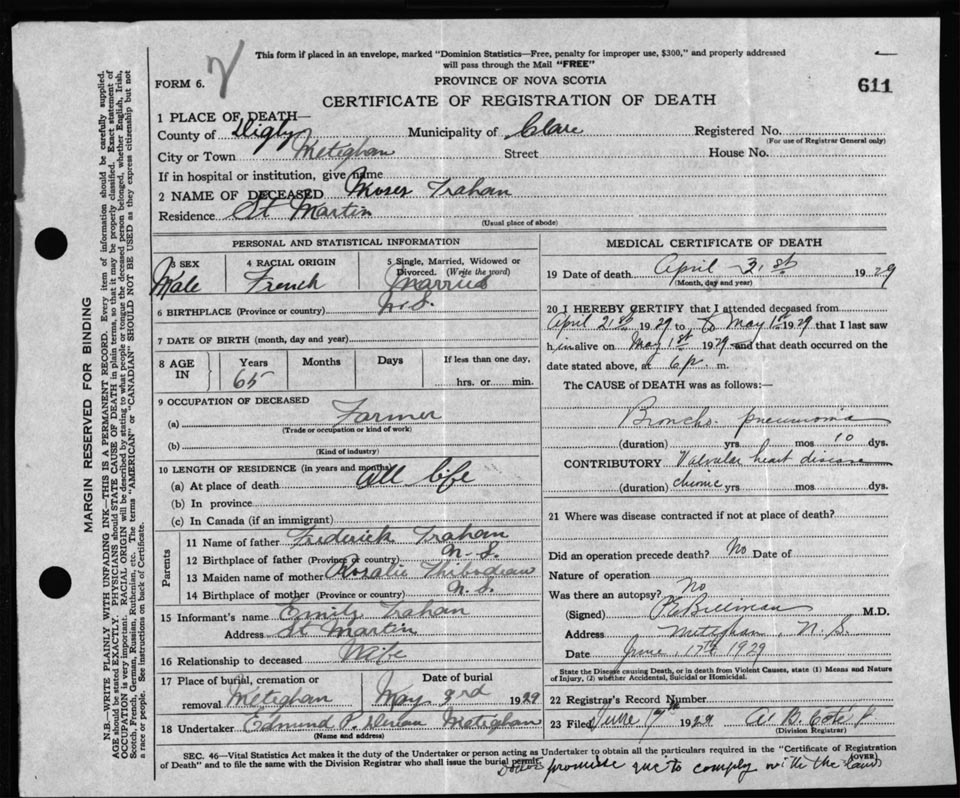 This form if placed in an envelope, marked "Dominion Statistics—Free, penalty for improper use, $300," and properly addressed
will pass through the Mail "FREE"
FORM 6.
PROVINCE OF NOVA SCOTIA
611
CERTIFICATE OF REGISTRATION OF DEATH
1 PLACE OF DEATH—
County of Digby Municipality of Clare Registered No.
(For use of Registrar General only)
City or Town Metighan Street House No.
If in hospital or institution, give name
2 NAME OF DECEASED Moses Trahan
Residence St Martin
(Usual place of abode)
PERSONAL AND STATISTICAL INFORMATION
3 SEX 4 RACIAL ORIGIN 5 Single, Married, Widowed or
Divorced. (Write the word)
Male French Married
6 BIRTHPLACE (Province or country) N.S.
7 DATE OF BIRTH (month, day and year)
8 AGE IN Years Months Days If less than one day,
65 hrs. or min.
9 OCCUPATION OF DECEASED
(a) Farmer
(Trade or occupation or kind of work)
(b)
(Kind of industry)
10 LENGTH OF RESIDENCE (in years and months)
(a) At place of death All life
(b) In province
(c) In Canada (if an immigrant)
Parents
11 Name of father Frederick Trahan
12 Birthplace of father (Province or country) N.S.
13 Maiden name of mother Rosalie Thibodeau
14 Birthplace of mother (Province or country) N.S.
15 Informant's name Emily Trahan
Address St Martin
16 Relationship to deceased Wife
17 Place of burial, cremation or Date of burial
removal Metighan May 3rd 1929
18 Undertaker Edmund P. Metighan
(Name and address)
MEDICAL CERTIFICATE OF DEATH
19 Date of death April 31st 1929
(Month, day and year)
20 I HEREBY CERTIFY that I attended deceased from
April 21st 1929 to May 1st 1929 that I last saw
him alive on May 1st 1929 and that death occurred on the
date stated above, at 6 p. m.
The CAUSE of DEATH was as follows:—
Broncho. pneumonia
(duration) yrs mos 10 dys.
CONTRIBUTORY Valvular heart disease
(duration) chronic yrs mos dys.
21 Where was disease contracted if not at place of death?
Did an operation precede death? No Date of
Nature of operation
Was there an autopsy? No
(Signed) M.D.
Address Metighan, N.S.
Date June 17th 1929
State the Disease causing Death, or in death from Violent Causes, state (1) Means and Nature
of Injury, (2) whether Accidental, Suicidal or Homicidal.
22 Registrar's Record Number
23 Filed June 17th 1929
(Division Registrar)
SEC. 46—Vital Statistics Act makes it the duty of the Undertaker or person acting as Undertaker to obtain all the particulars required in the "Certificate of Registration
of Death" and to file the same with the Division Registrar who shall issue the burial permit.
(OVER)
promise to comply with the law
MARGIN RESERVED FOR BINDING
N.B.—WRITE PLAINLY WITH UNFADING INK—THIS IS A PERMANENT RECORD. Every item of information should be carefully supplied.
AGE should be stated EXACTLY. PHYSICIANS should STATE CAUSE OF DEATH in plain terms, so that it may be properly classified. Exact statement of
OCCUPATION is very important. RACIAL ORIGIN will be described by stating to what people or tongue the deceased person belonged, whether English, Irish,
Scotch, French, German, Russian, Ruthenian, etc. The terms "AMERICAN" or "CANADIAN" SHOULD NOT BE USED as they express citizenship but not
a race or people. See instructions on back of Certificate.